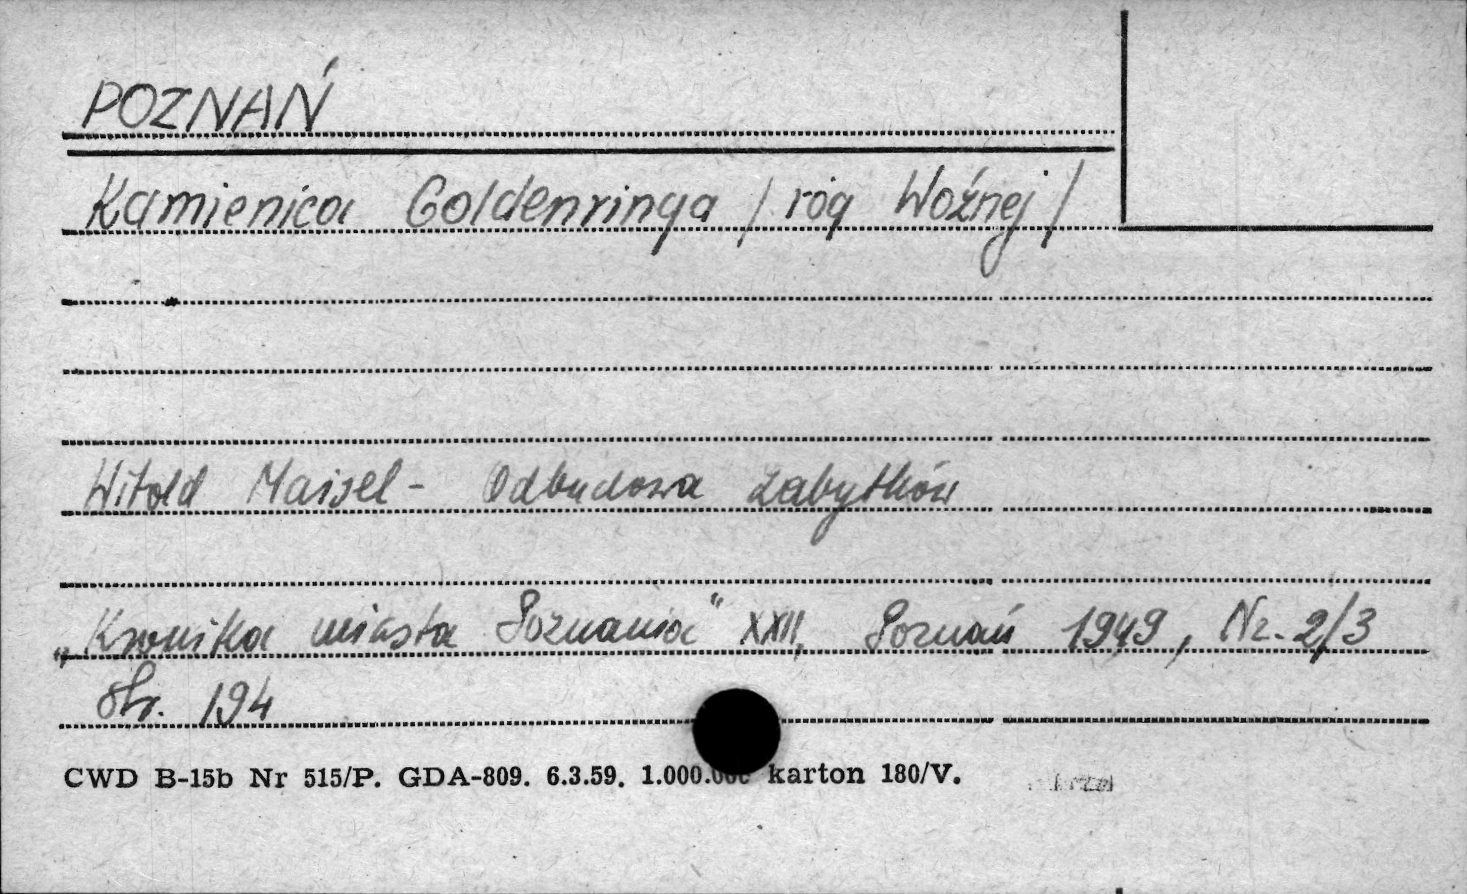 POZNAŃ
Kamienica Goldenringa / róg Woźnej /
Witold Maisel - Odbudowa zabytków
„Kronika miasta Poznania" XXII, Poznań 1949, Nr. 2/3
str. 194
CWD B-15b Nr 515/P. GDA-809. 6.3.59. 1.000.000 karton 180/V.